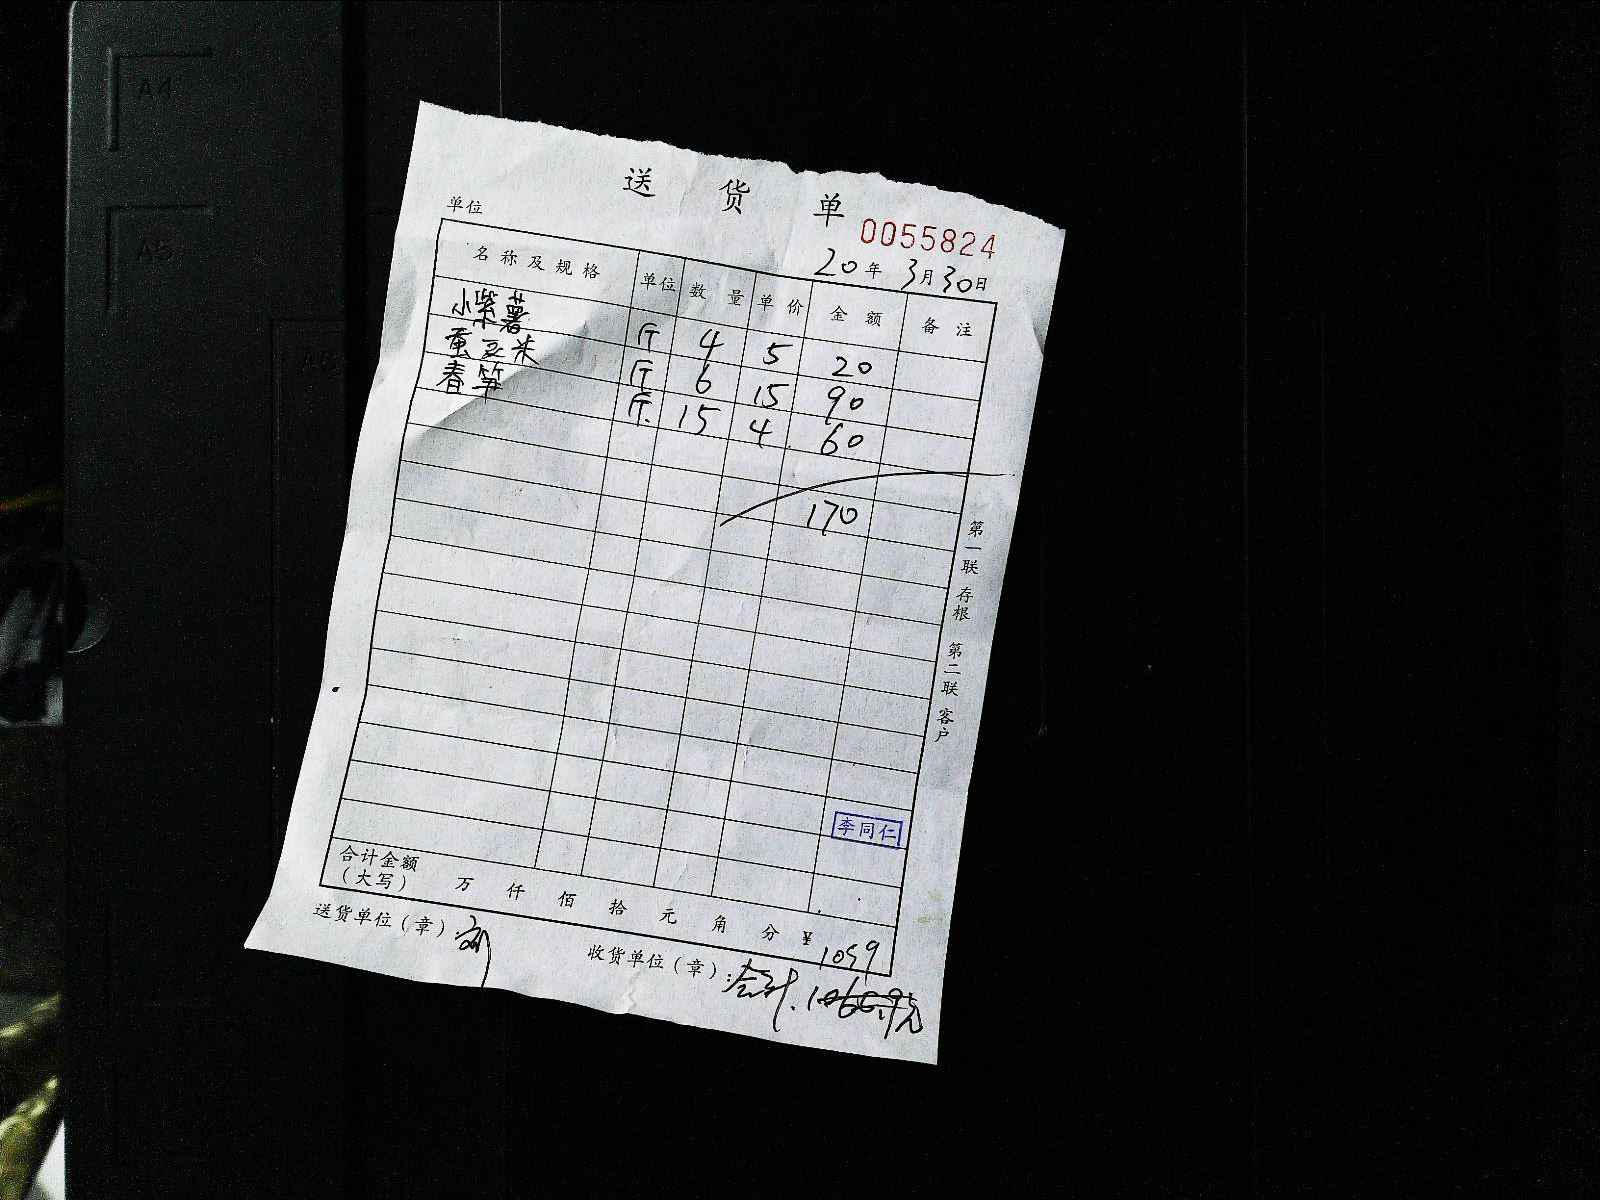 A4
A5
A6
送货单
0055824
单位
20年3月30日
名称及规格 单位 数量 单价 金额 备注
小紫薯 斤 4 5 20
蚕豆米 斤 6 15 90
春笋 斤 15 4 60
170
第一联 存根 第二联 客户
李同仁
合计金额
(大写) 万 仟 佰 拾 元 角 分 ¥ 1059
送货单位(章): 刘
收货单位(章):
合计.